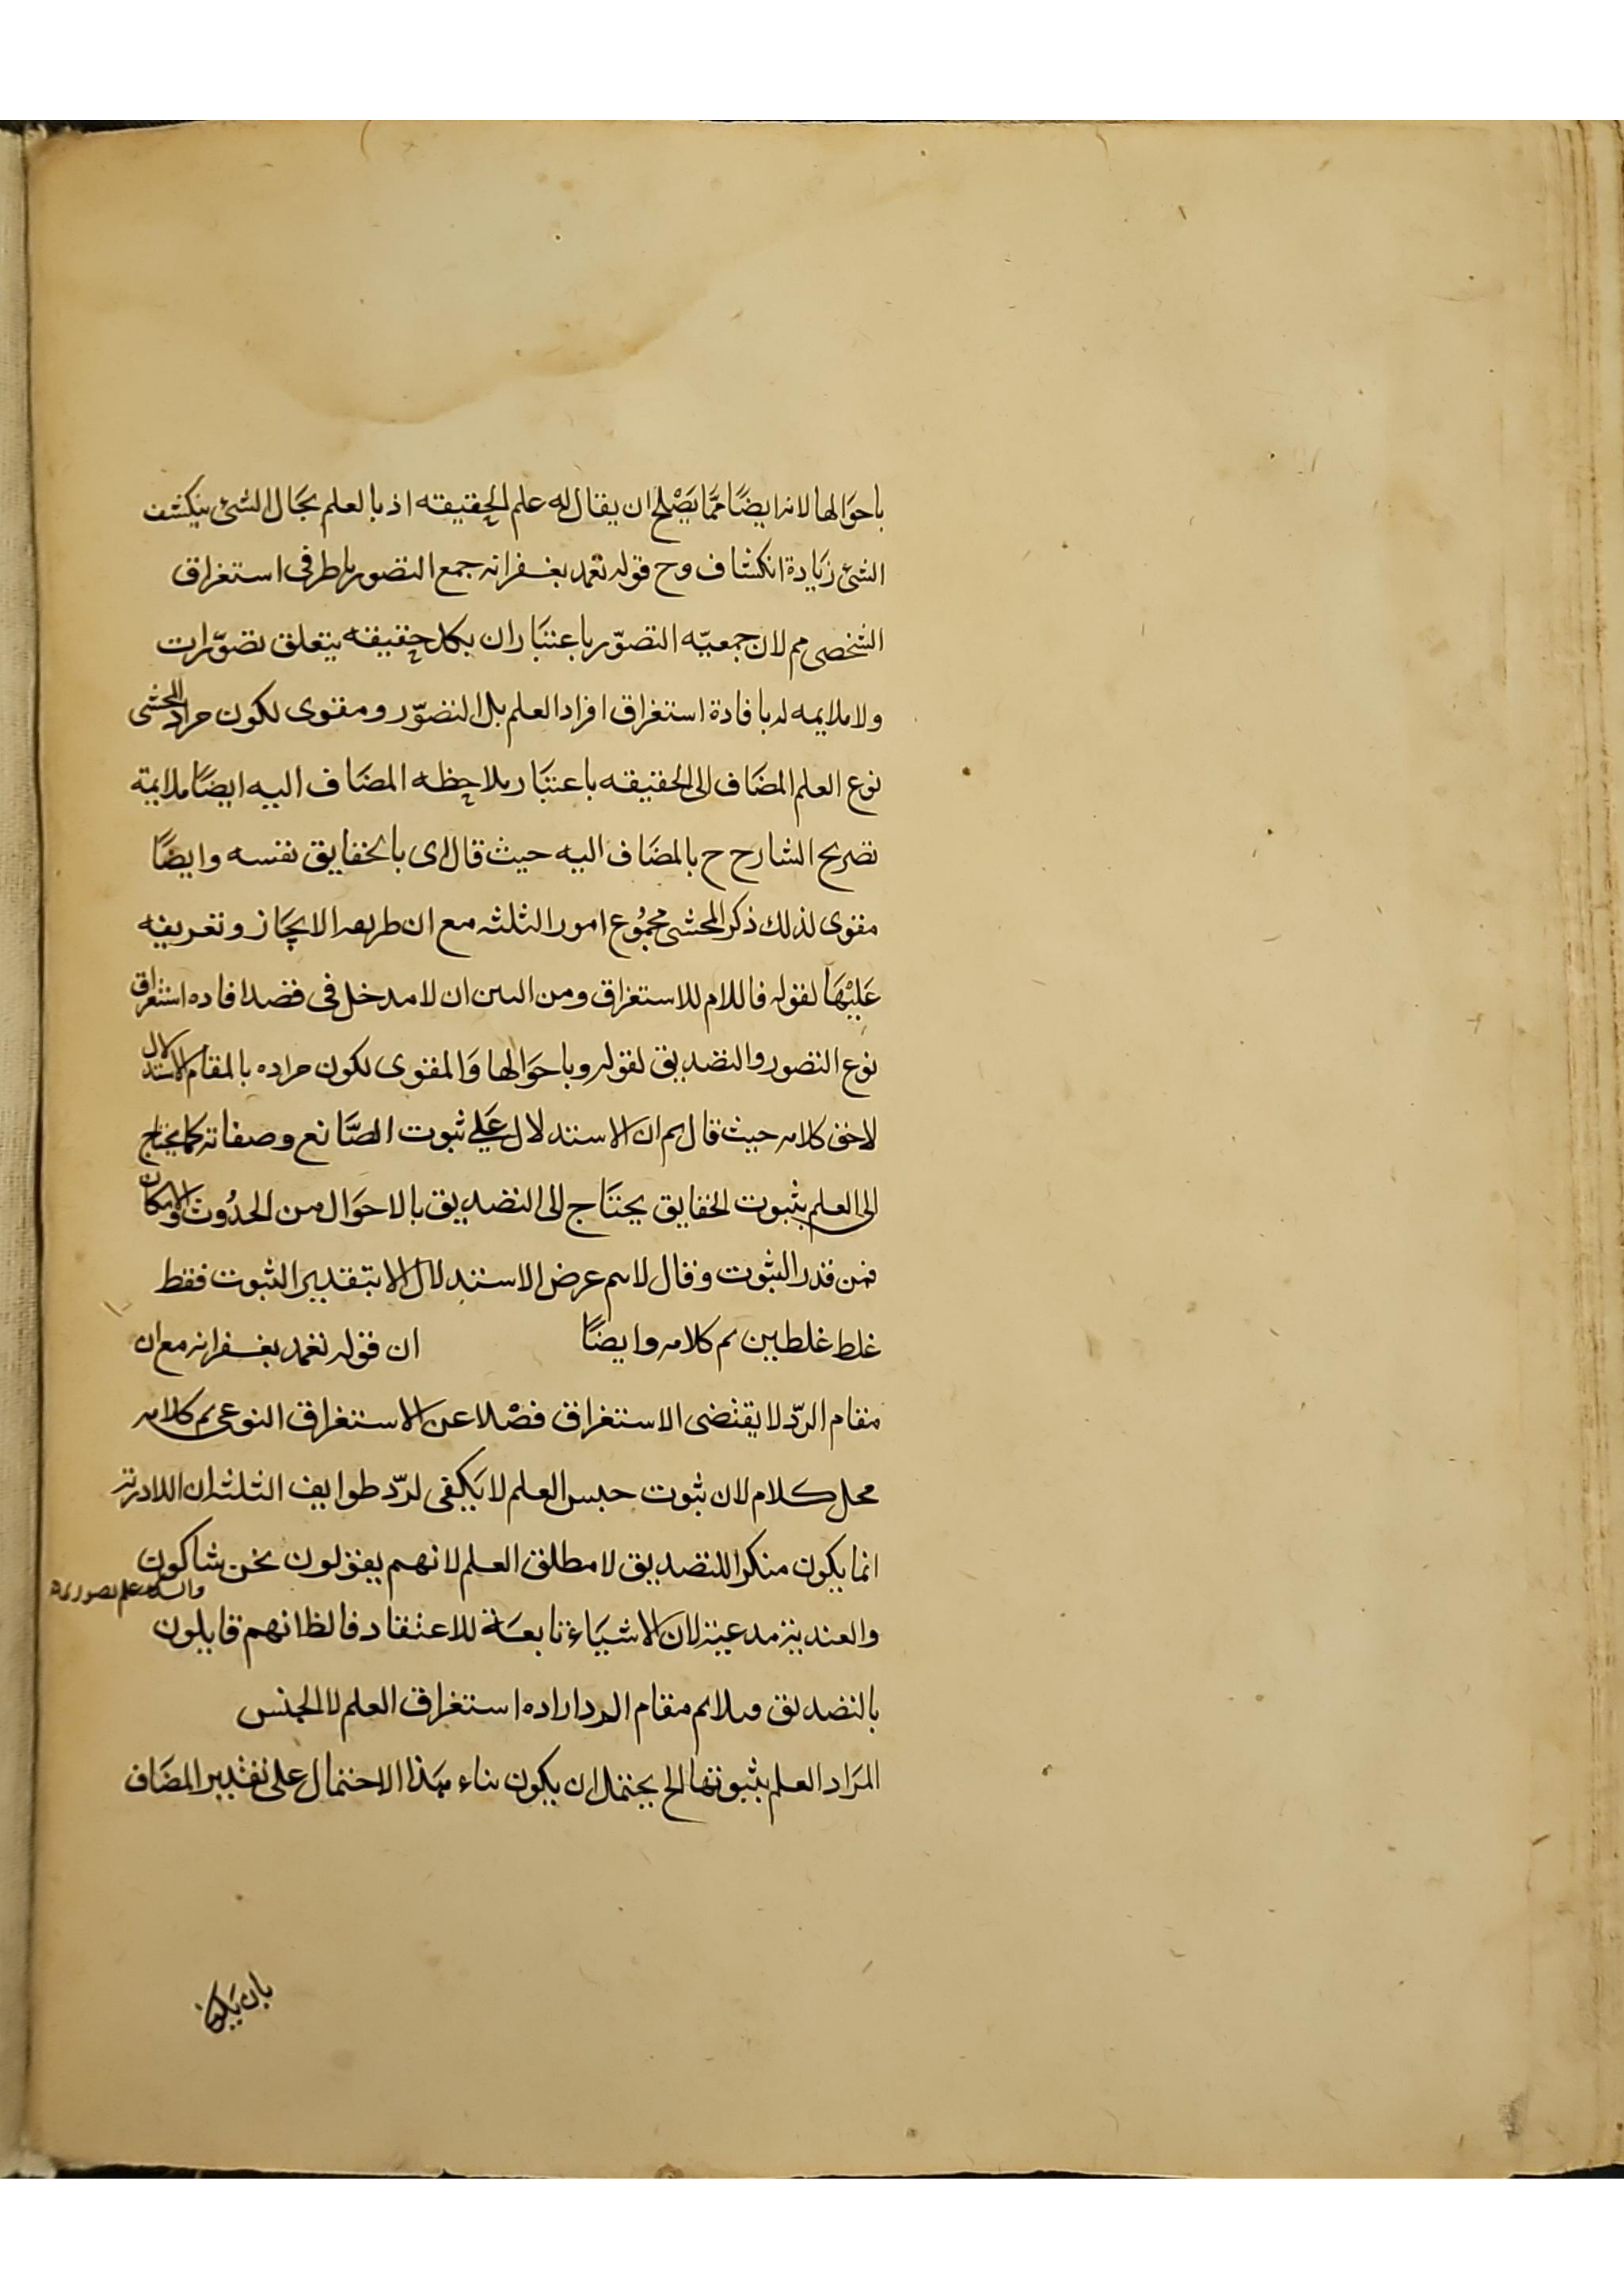 باحوالها لانه ايضًا ممّا يَصْلح ان يقال له علم الحقيقه اذ بالعلم بحَال الشئ ينكشف
الشئ زيَادة انكشاف وح قوله تغمد بغفرانه جمع التصور باطر فى استغراق
الشخصى مم لان جمعيّه التصوّر باعتبَار ان بكل حقيقه يتعلق تصوّرات
ولا ملايمه له بافادة استغراق افراد العلم بل التصوّر ومقوى لكون مراد المحشى
نوع العلم المضَاف الى الحقيقه باعتبَار ملاحظه المضَاف اليه ايضًا ملايمة
تصريح الشارح ح بالمضَاف اليه حيث قال اى بالحقايق نفسه وايضًا
مقوى لذلك ذكر المحشى مجمُوع امور الثلثه مع ان طريقه الايجَاز وتعريفه
عَليْهَا لقوله فاللام للاستغراق ومن البين ان لا مدخل فى قصد افاده استغراق
نوع التصور والتصديق لقوله وباحوَالها وَالمقوى لكون مراده بالمقام الاستدلال
لاحق كلامه حيث قال ثم ان الاستدلال عَلى ثبوت الصَّانع وصفاته كما يحتاج
الى العلم بثبوت الحقايق يحتَاج الى التصديق بالاحوَال من الحدُوث والامكان
فمن قدر الثبوت وقال لا يتم غرض الاستدلال الا بتقدير الثبوت فقط
غلط غلطين تم كلامه وايضًا ان قوله تغمد بغفرانه مع ان
مقام الردّ لا يقتضى الاستغراق فضْلا عن الاستغراق النوعى تم كلامه
محل كلام لان ثبوت جنس العلم لا يَكفى لردّ طوايف الثلث ان اللادرية
انما يكون منكرا للتصديق لا مطلق العلم لانهم يقولون نحن شاكون
والشك علم تصورى
والعندية مدعية لان الاشيَاء تابعَة للاعتقاد فالظ انهم قايلون
بالتصديق وملايم مقام الرد اراده استغراق العلم لا الجنس
المرَاد العلم بثبوتها الخ يحتمل ان يكون بناء هَذا الاحتمال على تقدير المضَاف
بان يكون